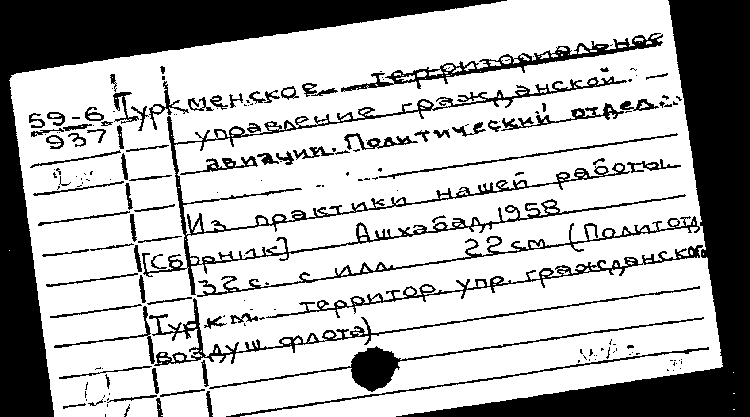 59-6
937
Туркменское территориальное
управление гражданской
авиации. Политический отдел.
Из практики нашей работы.
[Сборник] Ашхабад, 1958
32 с. с илл. 22 см (Политотд.
Туркм. территор. упр. гражданского
воздуш флота)